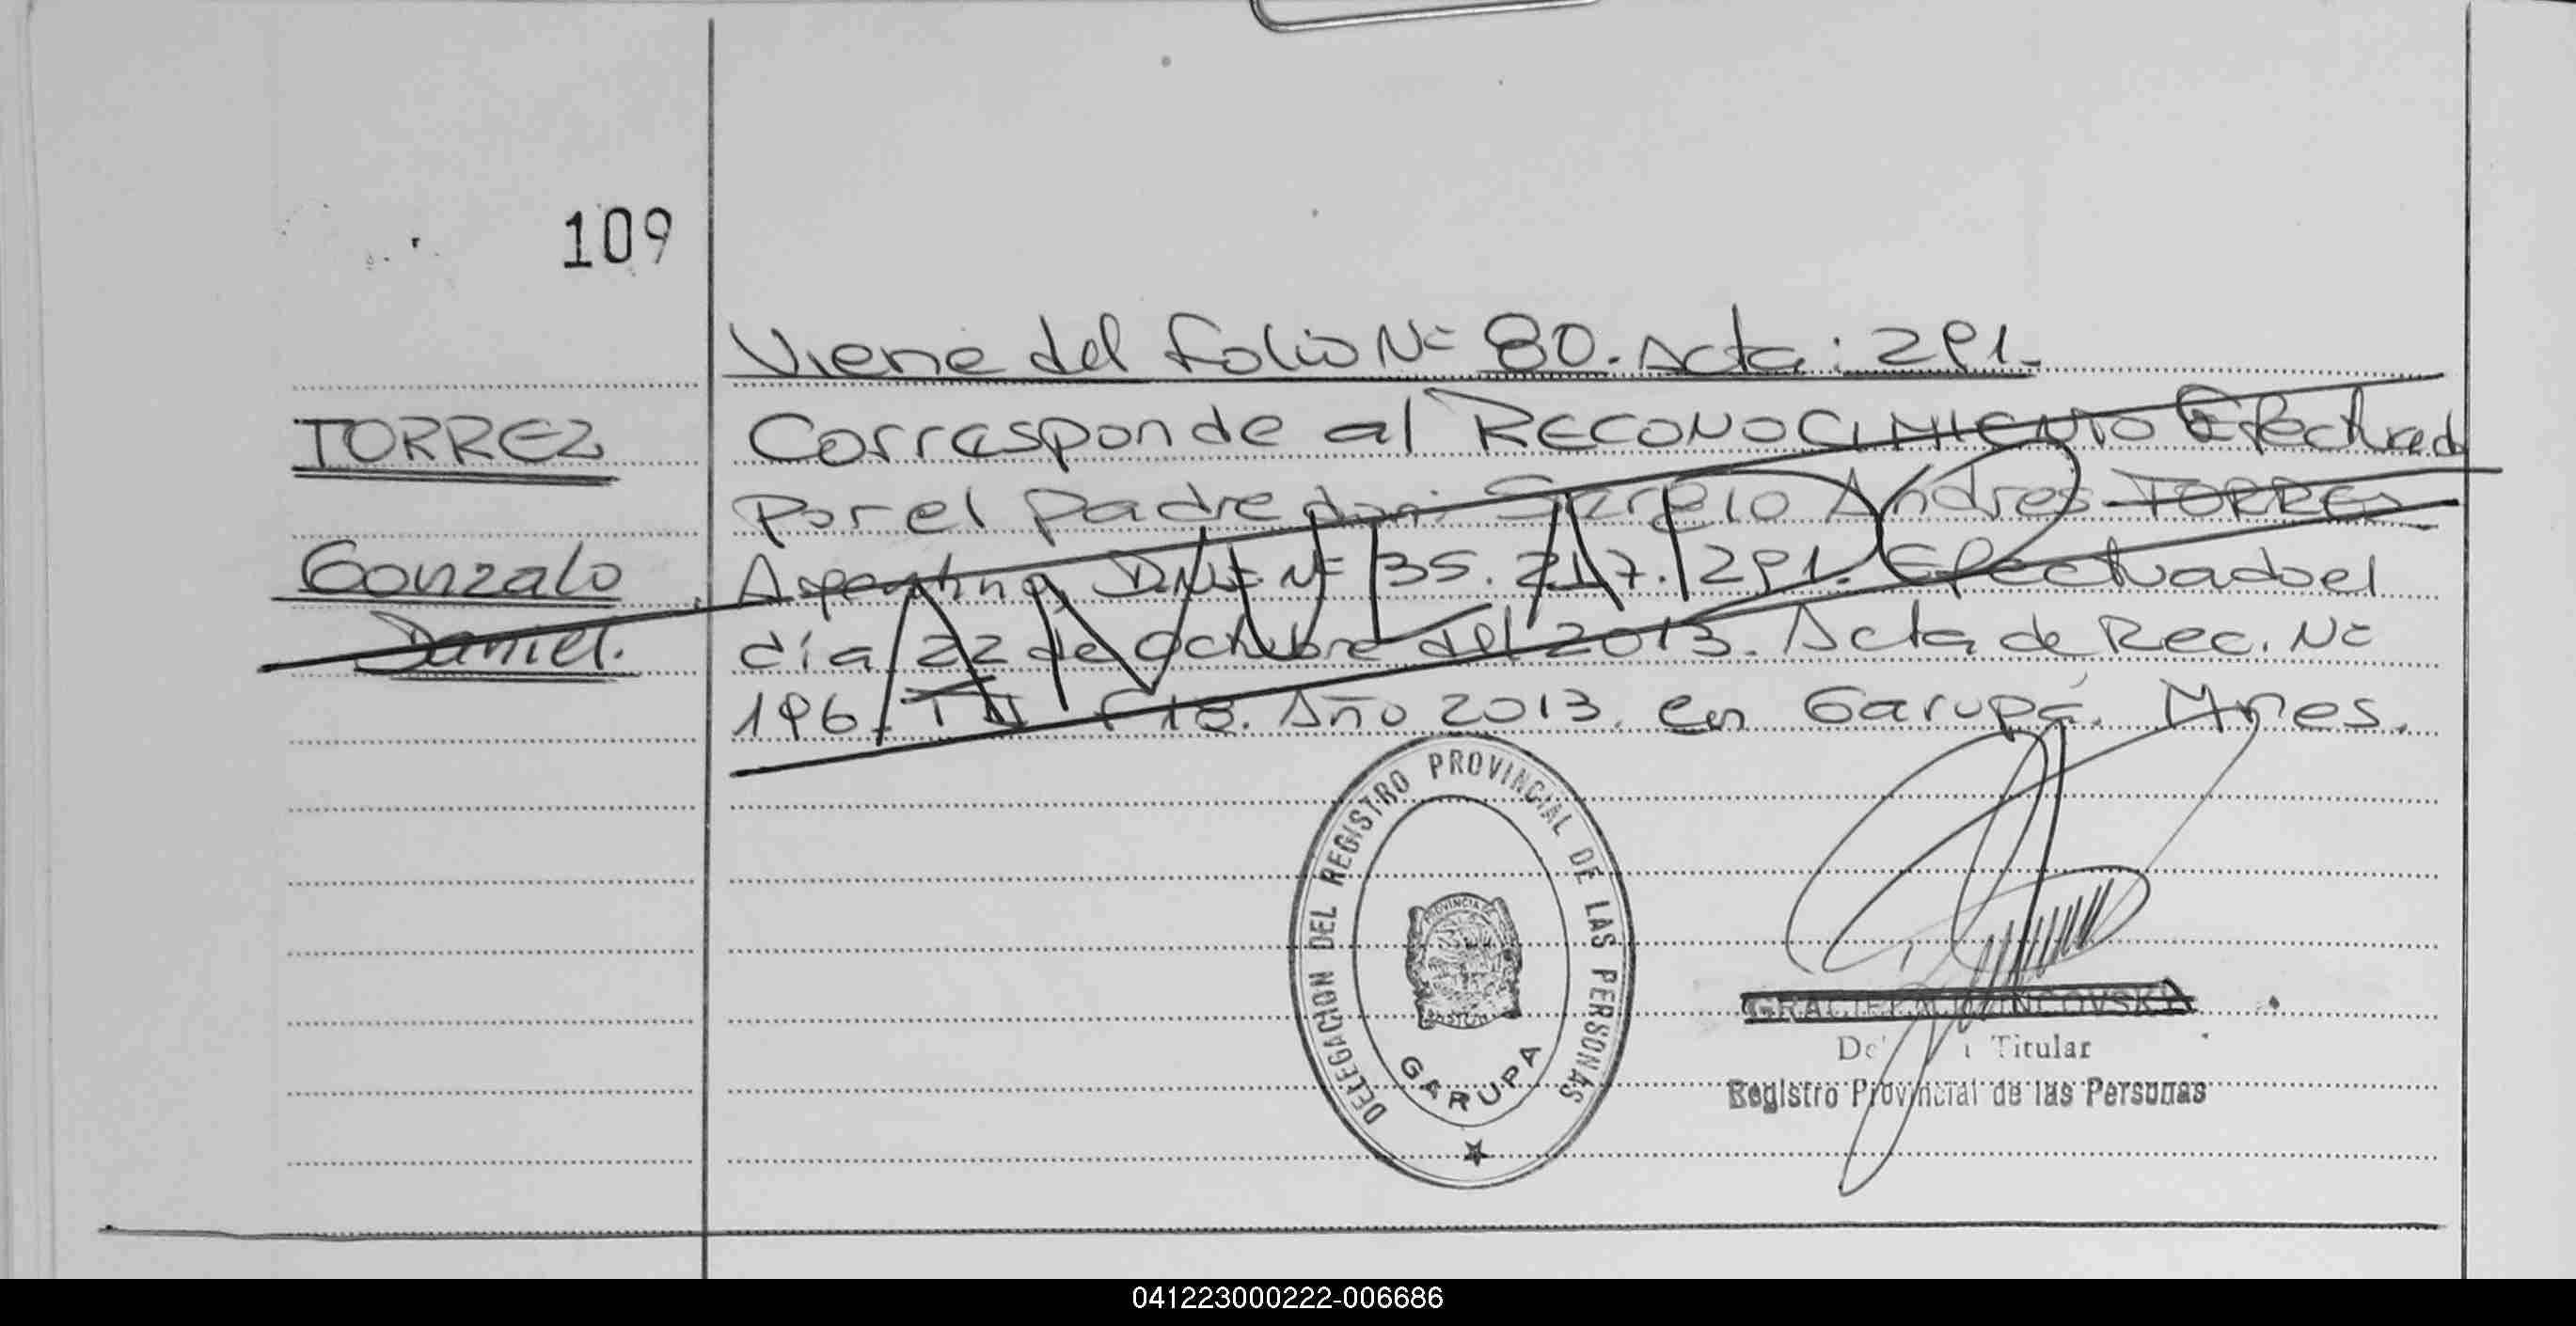 109
Viene del folio Nº 80. Acta: 291.
TORREZ
Corresponde al RECONOCIMIENTO Efectuado
Por el padre don: Sergio Andres TORREZ
Gonzalo
Argentino, DNI Nº 35.217.291. Efectuado el
Daniel.
día 22 de Octubre del 2013. Acta de Rec. Nº
196. T II F 18. Año 2013. en Garupá. Mnes.
ANULADO
DELEGACION DEL REGISTRO PROVINCIAL DE LAS PERSONAS
PROVINCIA DE
GARUPA
GRACIELA
Titular
Registro Provincial de las Personas
041223000222-006686